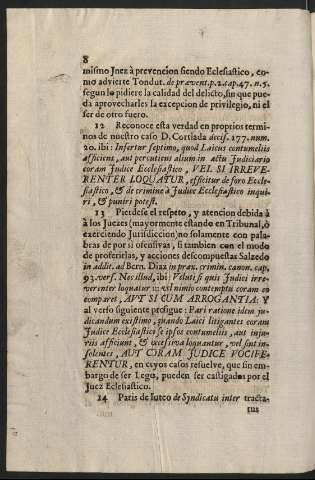 8
mismo Juez à prevencion siendo Eclesiastico, co-
mo advierte Tondut. de prævent. p. 2. cap. 47. n. 5.
segun lo pidiere la calidad del delicto, sin que pue-
da aprovecharles la excepcion de privilegio, ni el
ser de otro fuero.
12 Reconoce esta verdad en proprios termi-
nos de nuestro caso D. Cortiada decis. 177. num.
20. ibi: Infertur septimo, quod Laicus contumeliis
afficiens, aut percutiens alium in actu Judiciario
coram Judice Ecclesiastico, VEL SI IRREVE-
RENTER LOQUATUR, efficitur de foro Eccle-
siastico, & de crimine à Judice Ecclesiastico inqui-
ri, & puniri potest.
13 Pierdese el respeto, y atencion debida à
à los Juezes (mayormente estando en Tribunal, ò
exerciendo Jurisdiccion) no solamente con pala-
bras de por si ofensivas, si tambien con el modo
de proferirlas, y acciones descompuestas Salzedo
in addit. ad Bern. Diaz in prax. crimin. canon. cap.
93. vers. Nec illud, ibi: Velut si quis Judici irre-
verenter loquatur vel nimio contemptu coram eo
comparet, AUT SI CUM ARROGANTIA: Y
al verso siguiente prosigue: Pari ratione idem ju-
dicandum existimo, quando Laici litigantes coram
Judice Ecclesiastico se ipsos contumeliis, aut inju-
riis afficiunt, & excessiva loquantur, vel sint in-
solentes, AUT CORAM JUDICE VOCIFE-
RENTUR, en cuyos casos resuelve, que sin em-
bargo de ser Lego, pueden ser castigados por el
Juez Eclesiastico.
14 Paris de Puteo de Syndicatu inter tracta-
tus